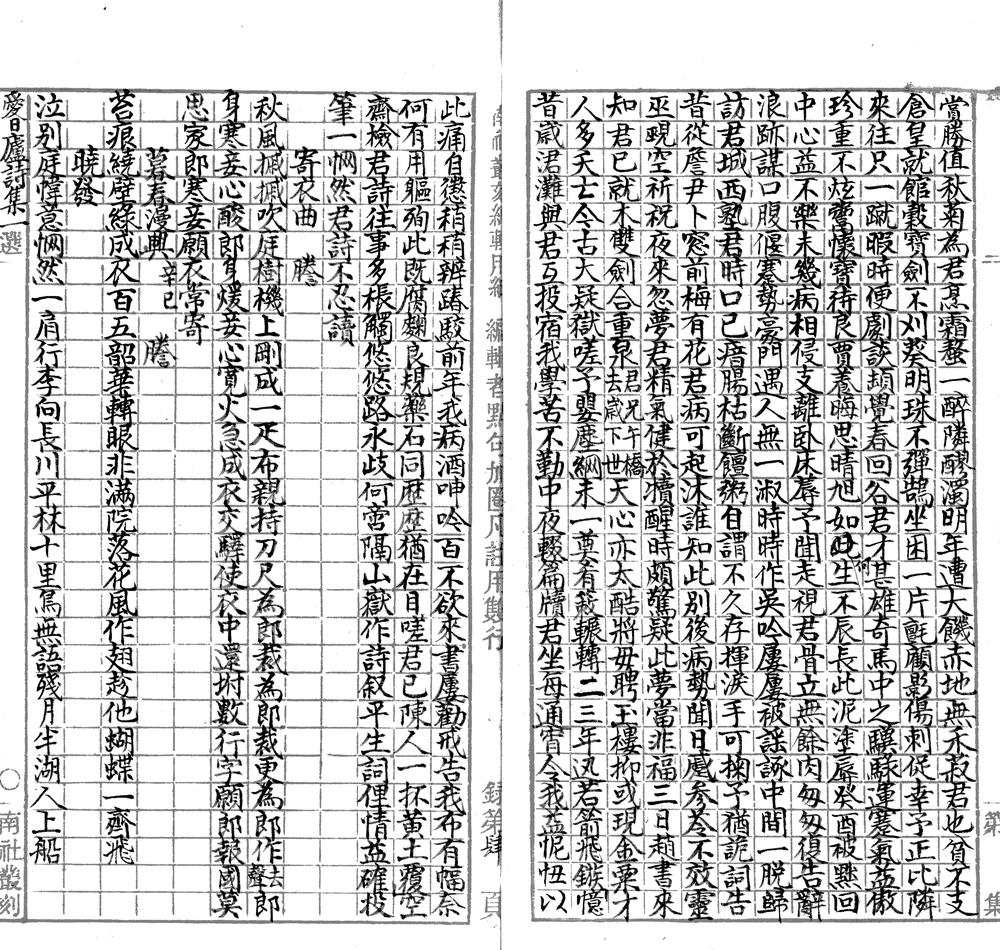 當勝值秋菊為君烹霜螯一醉隣醪濁明年遭大饑赤地無禾菽君也貧不支
倉皇就館穀寶劍不刈葵明珠不彈鵠坐困一片氈顧影傷刺促幸予正比隣
來往只一蹴暇時便劇談頡覺春回谷君才甚雄奇馬中之驥騄運蹇氣益傲
珍重不炫鬻懷寶待良賈養晦思晴旭如何此生不辰長此泥塗辱癸酉被黜回
中心益不樂未幾病相侵支離卧床蓐予聞走視君骨立無餘肉匆匆復告辭
浪跡謀口腹偃蹇勢豪門遇人無一淑時時作吳吟屢屢被謠諑中間一脫歸
訪君城西塾君時口已瘖腸枯斷饘粥自謂不久存揮淚手可掬予猶詭詞告
昔從詹尹卜窓前梅有花君病可起沐誰知此別後病勢聞日蹙參苓不效靈
巫覡空祈祝夜來忽夢君精氣健於犢醒時頗驚疑此夢當非福三日趙書來
知君已就木雙劍合重泉君兄午橋去歲下世天心亦太酷將毋聘玉樓抑或現金粟才
人多夭士今古大疑獄嗟予嬰塵網未一奠芻菽輾轉二三年迅若箭飛鏃憶
昔歲涒灘與君互投宿我學苦不勤中夜輟篇牘君坐每通宵令我益怩忸以
此痛自懲稍稍辨踳駁前年我病酒呻吟百不欲來書屢勸戒告我布有幅奈
何有用軀殉此既腐麴良規藥石同歷歷猶在目嗟君已陳人一抔黃土覆空
齋檢君詩往事多棖觸悠悠路水歧何啻隔山嶽作詩叙平生詞俚情益確投
筆一惘然君詩不忍讀
寄衣曲 謄
秋風摵摵吹庭樹機上剛成一疋布親持刀尺為郎裁為郎裁更為郎作去聲郎
身寒妾心酸郎身煖妾心寬火急成衣交驛使衣中還坿數行字願郎報國莫
思家郎寒妾願衣常寄
暮春漫興 辛巳 謄
苔痕繞壁綠成衣百五韶華轉眼非滿院落花風作翅趁他蝴蝶一齊飛
曉發
泣別庭幃意惘然一肩行李向長川平林十里鳥無語殘月半湖人上船
愛日廬詩集 選 〇 南社叢刻